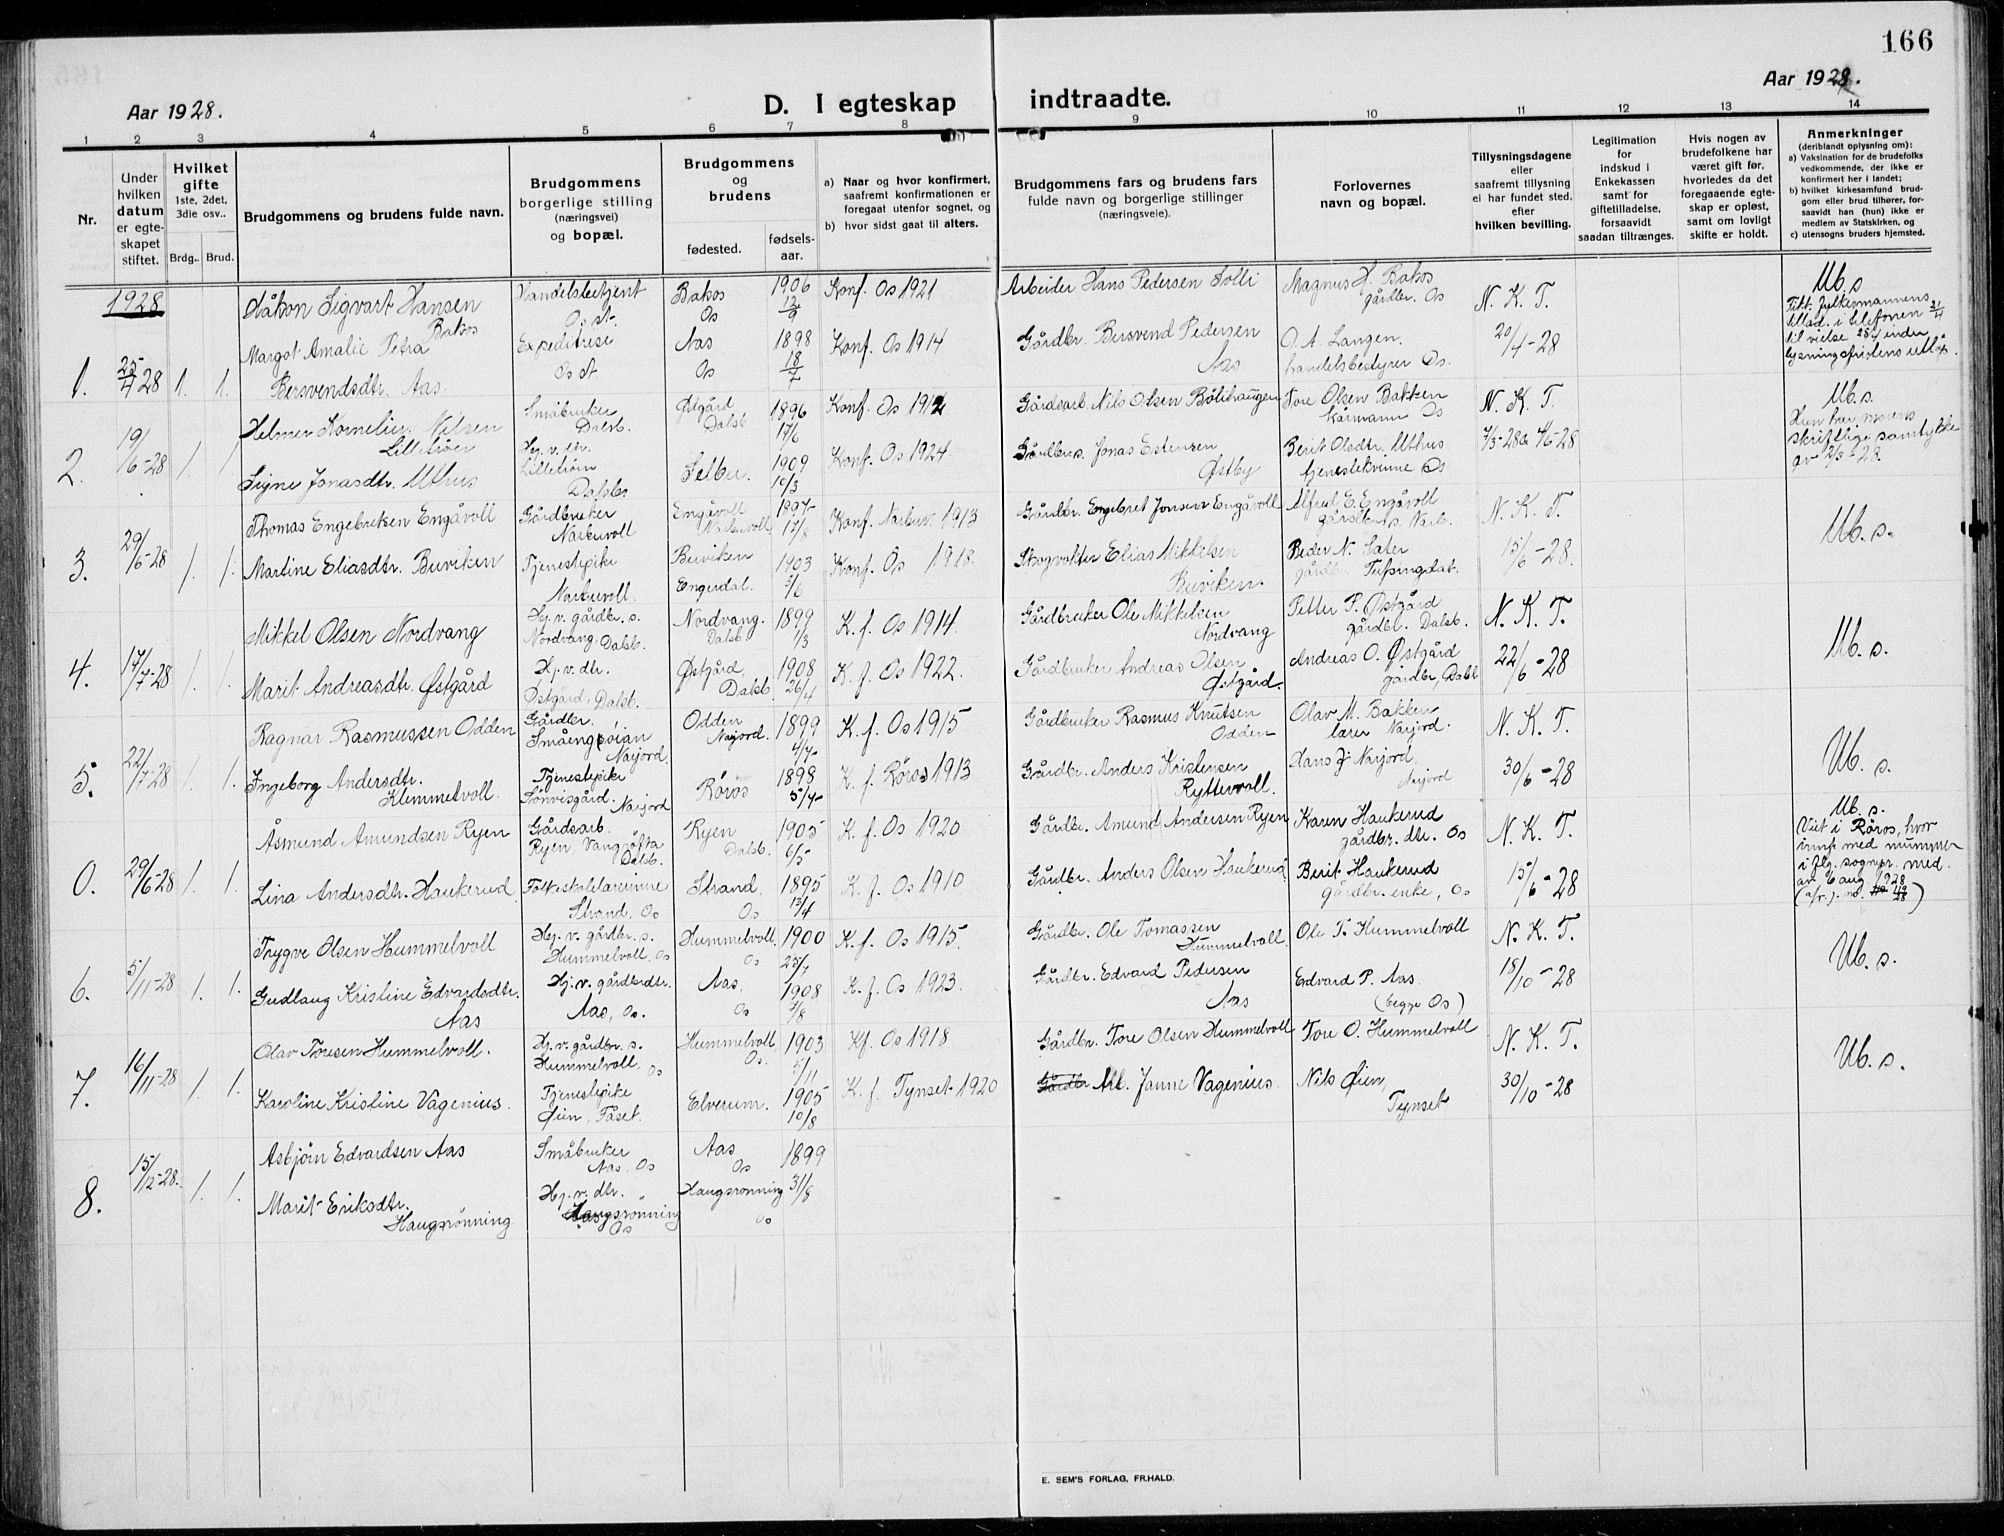 166
Aar 1928.
D. I egteskap indtraadte.
Aar 1928.
1 2 3 4 5 6 7 8 9 10 11 12 13 14
Nr.
Under hvilken datum er egteskapet stiftet.
Hvilket gifte 1ste, 2det, 3die osv..
Brdg.. Brud.
Brudgommens og brudens fulde navn.
Brudgommens borgerlige stilling (næringsvei) og bopæl.
Brudgommens og brudens
fødested. fødselsaar.
a) Naar og hvor konfirmert, saafremt konfirmationen er foregaat utenfor sognet, og
b) hvor sidst gaat til alters.
Brudgommens fars og brudens fars fulde navn og borgerlige stillinger (næringsveie).
Forlovernes navn og bopæl.
Tillysningsdagene eller saafremt tillysning ei har fundet sted, efter hvilken bevilling.
Legitimation for indskud i Enkekassen samt for giftetilladelse, forsaavidt saadan tiltrænges.
Hvis nogen av brudefolkene har været gift før, hvorledes da det foregaaende egteskap er opløst, samt om lovligt skifte er holdt.
Anmerkninger (deriblandt oplysning om):
a) Vaksination for de brudefolks vedkommende, der ikke er konfirmert her i landet;
b) hvilket kirkesamfund brudgom eller brud tilhører, forsaavidt han (hun) ikke er medlem av Statskirken, og
c) utensogns bruders hjemsted.
1928
1. 25/4 28 1. 1.
Håkon Sigvart Hansen Bakos
Handelsbetjent Os st.
Bakos Os
1906 12/9
Konf. Os 1921
Arbeider Hans Pedersen Tolli
Magnus H. Bakos gårdbr. Os
N. K. T.
Ub. s
Margot Amalie Petra Bersvendsdtr. Aas.
Expeditrise Os st
Aas Os
1898 18/7
Konf. Os 1914
Gårdbr. Bersvend Pedersen Aas
O. A. Langen. handelsbestyrer Os.
20/4-28
til vielse 25/4 inden lysningsfristens utløp.
2. 19/6-28 1. 1.
Helmer Kornelius Nilsen Lilletrøen
Småbruker Dalsb.
Østgård Dalsb
1896 17/6
Konf. Os 1912
Gårdsarb. Nils Olsen Bölihaugen
Tore Olsen Bakken Os
N. K. T.
Ub. s.
Signe Jonasdtr. Uthus
Hj. v. dtr. Dalsb
Selbu.
1909 10/3
Konf. Os 1924
Jonas Estensen Østby
Berit Olsdtr. Uthus tjenestekvinne Os
Hun har morens skriftlige samtykke
3. 29/6-28 1. 1.
Thomas Engebretsen Engåvoll
Gårdbruker Narbuvoll
Engåvoll Narbuvoll
1897 17/8
Konf. Narbuv. 1913
Gårdbr. Engebret Jonsen Engåvoll
Alfred E. Engåvoll gårdbr. s. Narb.
N. K. T.
Ub. s.
Martine Eliasdtr. Buviken
Tjenestepike Narbuvoll.
Buviken Engerdal.
1903 3/6
Konf. Os 1918.
Skogvokter Elias Mikkelsen Buviken.
Peder N. Sæter gårdbr. Tufsingdal.
15/6-28.
4. 17/7-28 1. 1.
Mikkel Olsen Nordvang
Hj. v. gårdbr. s. Nordvang. Dalsb.
Nordvang. Dalsb
1899 1/3
K. f. Os 1914.
Gårdbruker Ole Mikkelsen Nordvang
Petter P. Østgård gårdbr. Dalsb.
N. K. T.
Ub. s.
Marit Andreasdtr. Østgård
Hj. v. dtr. Østgård, Dalsb.
Østgård, Dalsb
1908 26/4
K. f. Os 1922.
Gårdbruker Andreas Olsen Østgård.
Andreas O. Østgård gårdbr, Dalsb
22/6-28
5. 22/7-28 1. 1.
Ragnar Rasmussen Odden
Gårdbr. Småengsøian Narjord
Odden Narjord.
1899 4/4
K. f. Os 1915
Gårdbruker Rasmus Knutsen Odden
Olav M. Bakken lærer Narjord.
N. K. T.
Ub. s.
Ingeborg Andersdtr. Klemmetvoll.
Tjenestepike Narjord
Røros
1898
K. f. Røros 1913
Gårdbr. Anders Kristensen Ryttervoll.
Hans J. Narjord, Narjord
30/6-28
0. 29/6-28 1. 1.
Åsmund Amundsen Ryen
Gårdsarb. Ryen, Vangrøfta Dalsb.
Ryen Dalsb.
1905 6/5
K. f. Os 1920
Gårdbr. Amund Andersen Ryen
Karen Haukerud gårdbr. dtr. Os
N. K. T.
Ub. s.
Viet i Røros, hvor innf. med nummer i flg. sognepr. med. av 6 aug 1928
Lina Andersdtr. Haukerud
Folkeskolelærerinne Strand, Os
Strand. Os
1895 13/4
K. f. Os 1910
Gårdbr. Anders Olsen Haukerud
Berit Haukerud gårdbr. enke, Os
15/6-28
6. 5/11-28 1. 1.
Trygve Olsen Hummelvoll
Hj. v. gårdbr. s. Hummelvoll, Os
Hummelvoll Os
1900 25/7
K. f. Os 1915.
Gårdbr. Ole Tomassen Hummelvoll
Ole T. Hummelvoll
N. K. T.
Ub. s.
Gudlaug Kristine Edvardsdtr. Aas
Hj. v. gårdbrdtr. Aas, Os.
Aas, Os
1908
K. f. Os 1923.
Gårdbr. Edvard Pedersen Aas
Edvard P. Aas. (begge Os)
18/10-28
7. 16/11-28 1. 1.
Olav Toresen Hummelvoll.
Hj. v. gårdbr. s. Hummelvoll, Os
Hummelvoll Os.
1903 5/11
Kf. Os 1918
Gårdbr. Tore Olsen Hummelvoll
Tore O. Hummelvoll
N. K. T.
Ub. s.
Karoline Kristine Vagenius.
Tjenestepike Øien, Fåset.
Elverum.
1905 10/8
K. f. Tynset 1920
Gårdbr Arb. Janne Vagenius.
Nils Øien, Tynset
30/10-28
8. 15/12-28. 1. 1.
Asbjørn Edvardsen Aas
Småbruker Aas. Os
Aas Os
1899 31/8
Marit Eriksdtr. Haugsrønning
Hj. v. dtr. Haugsrønning Os
Haugsrønning Os
E. SEM'S FORLAG, FR.HALD.